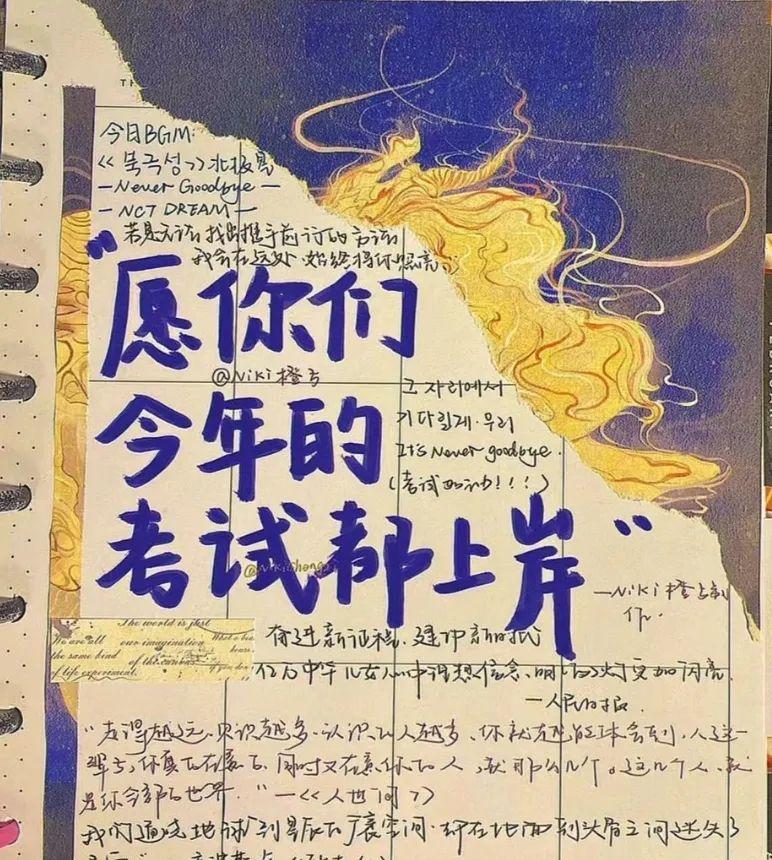 今日BGM:
<<북극성>>北极星
—Never Goodbye—
—NCT DREAM—
若是无法找出携手前行的方法
我会在远处 始终将你照亮
"愿你们
@Niki橙与
今年的
그 자리에서
기다릴게 우리
It's Never goodbye.
(考试加油!!!)
考试都上岸"
—Niki橙与制
作.
The world is just
We are all our imagination What a
the same kind of the
of life experiment. if you don
奋进新征程,建功新时代
亿万中华儿女心中理想信念,明灯更加闪亮
—人民日报.
"走得越远,见识越多,认识的人越多,你就越能体会到,人这一
辈子,你真的在意的,同时又在意你的人,就那么几个。这几个人,就
是你全部的世界."—<<人世间>>
我们通晓地球到星辰的广袤空间.却在地面到头骨之间迷失了